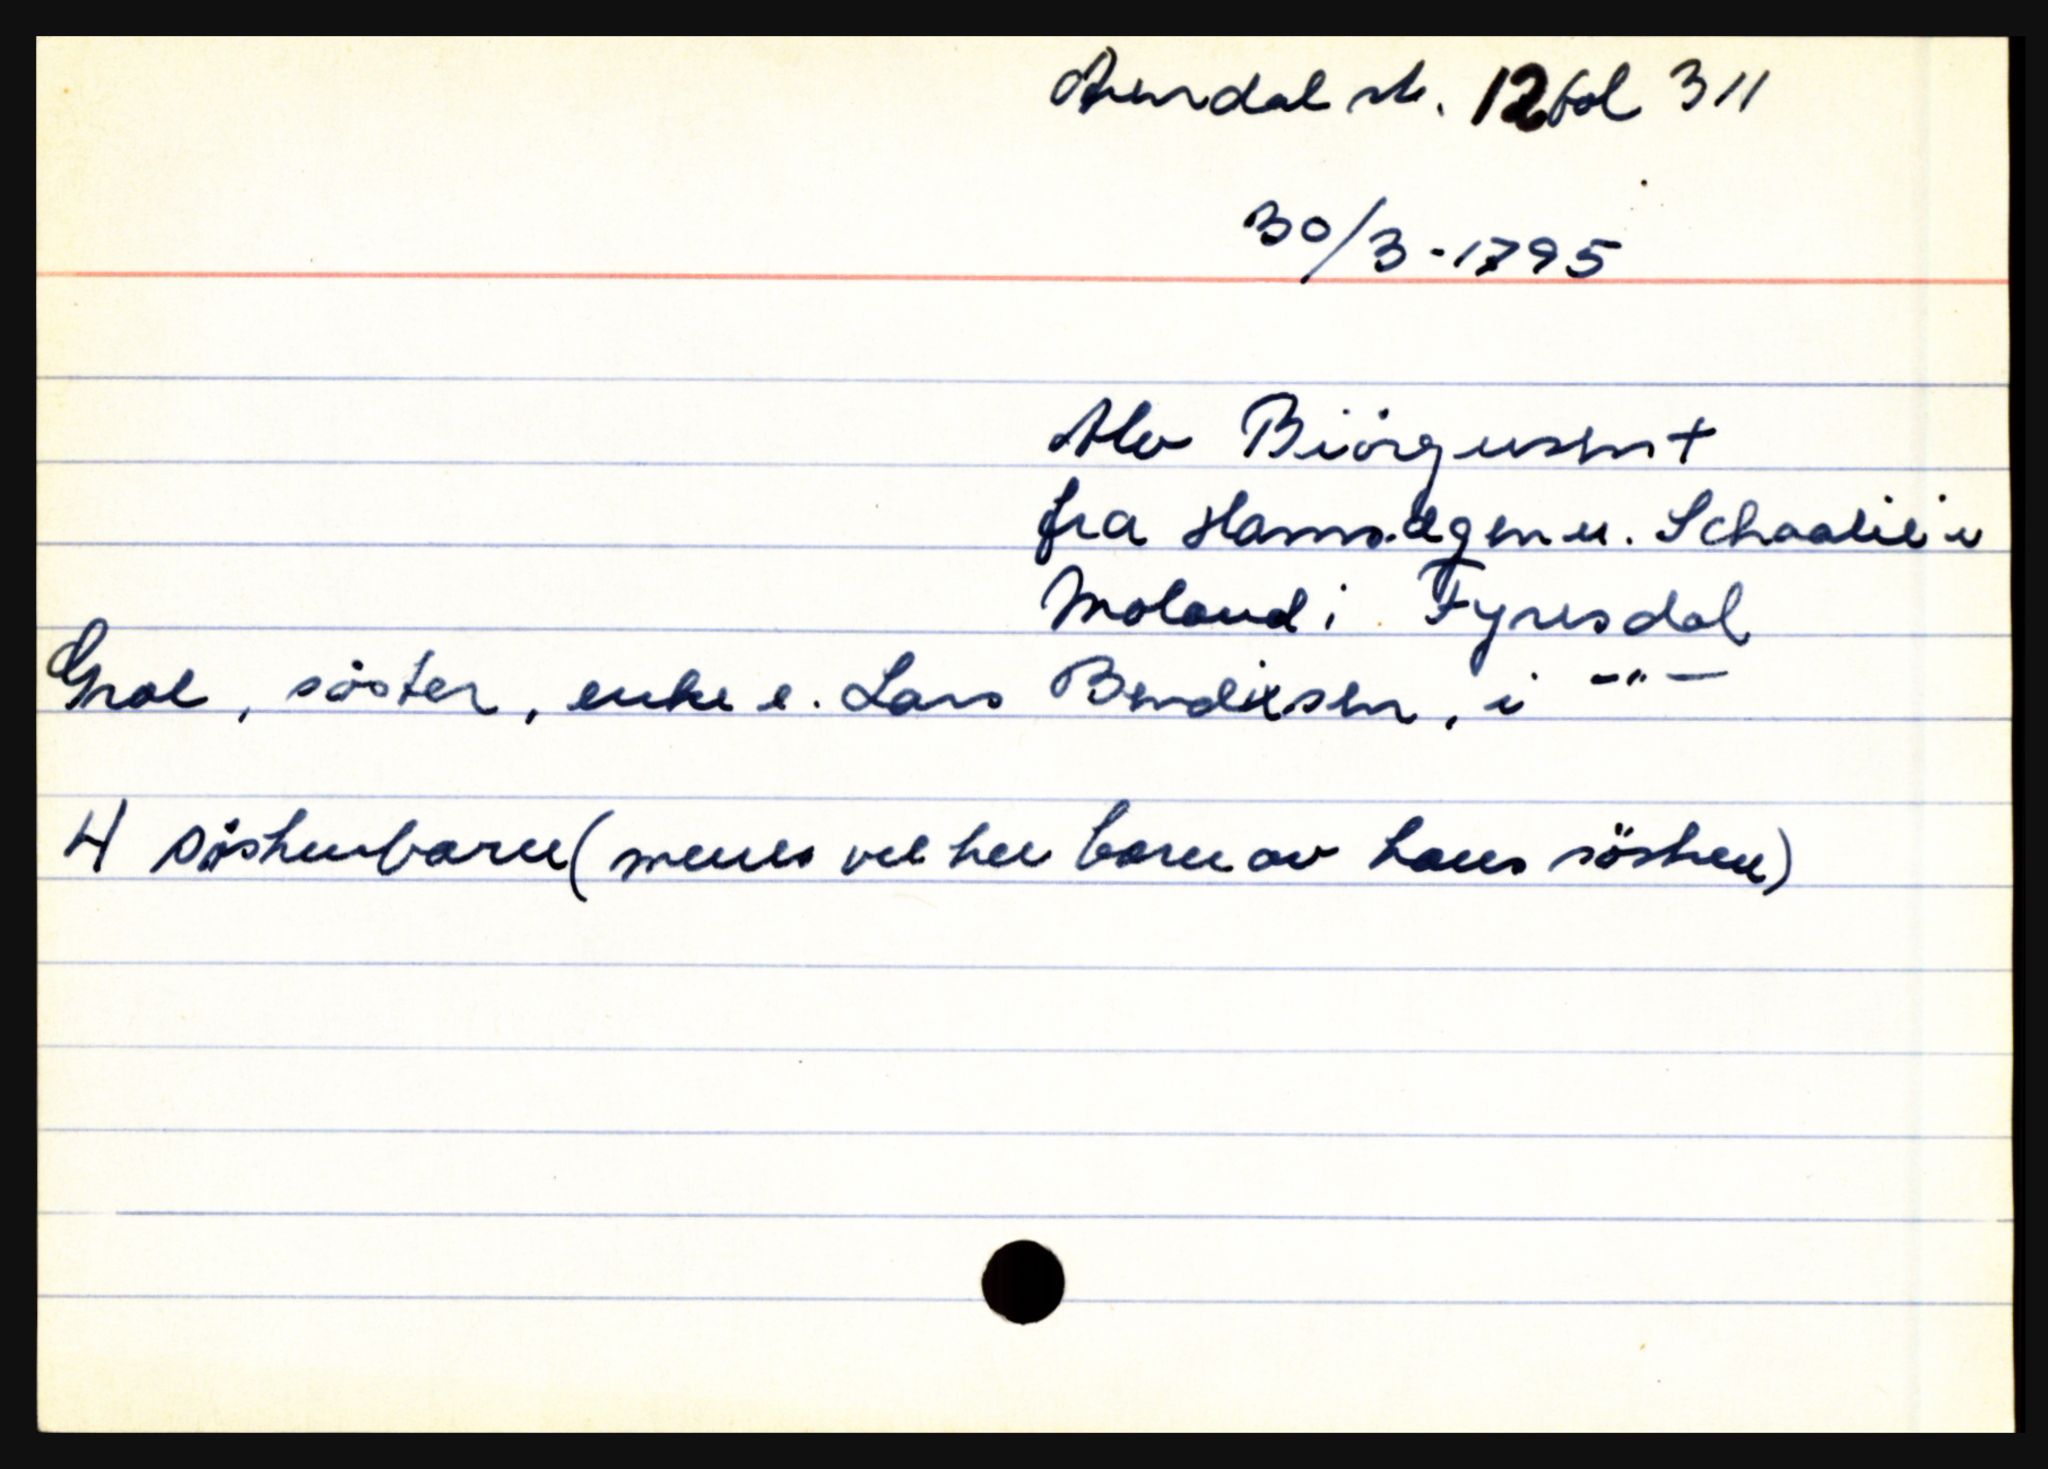 Arendal sk. 12 fol 311
30/3-1795
Alv Biörgusen +
fra Schaalie i
Moland i Fyresdal
Groe, söster, enke e. Lars Bendixsen, i -"-
4 söskenbarn (menes vel her barn av hans sösken)